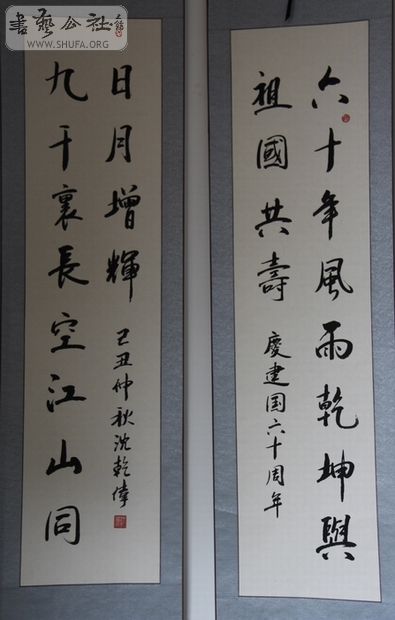 書藝公社
WWW.SHUFA.ORG
六十年風雨乾坤與
祖國共壽
慶建国六十周年
九千裏長空江山同
日月增輝
己丑仲秋沈乾偉